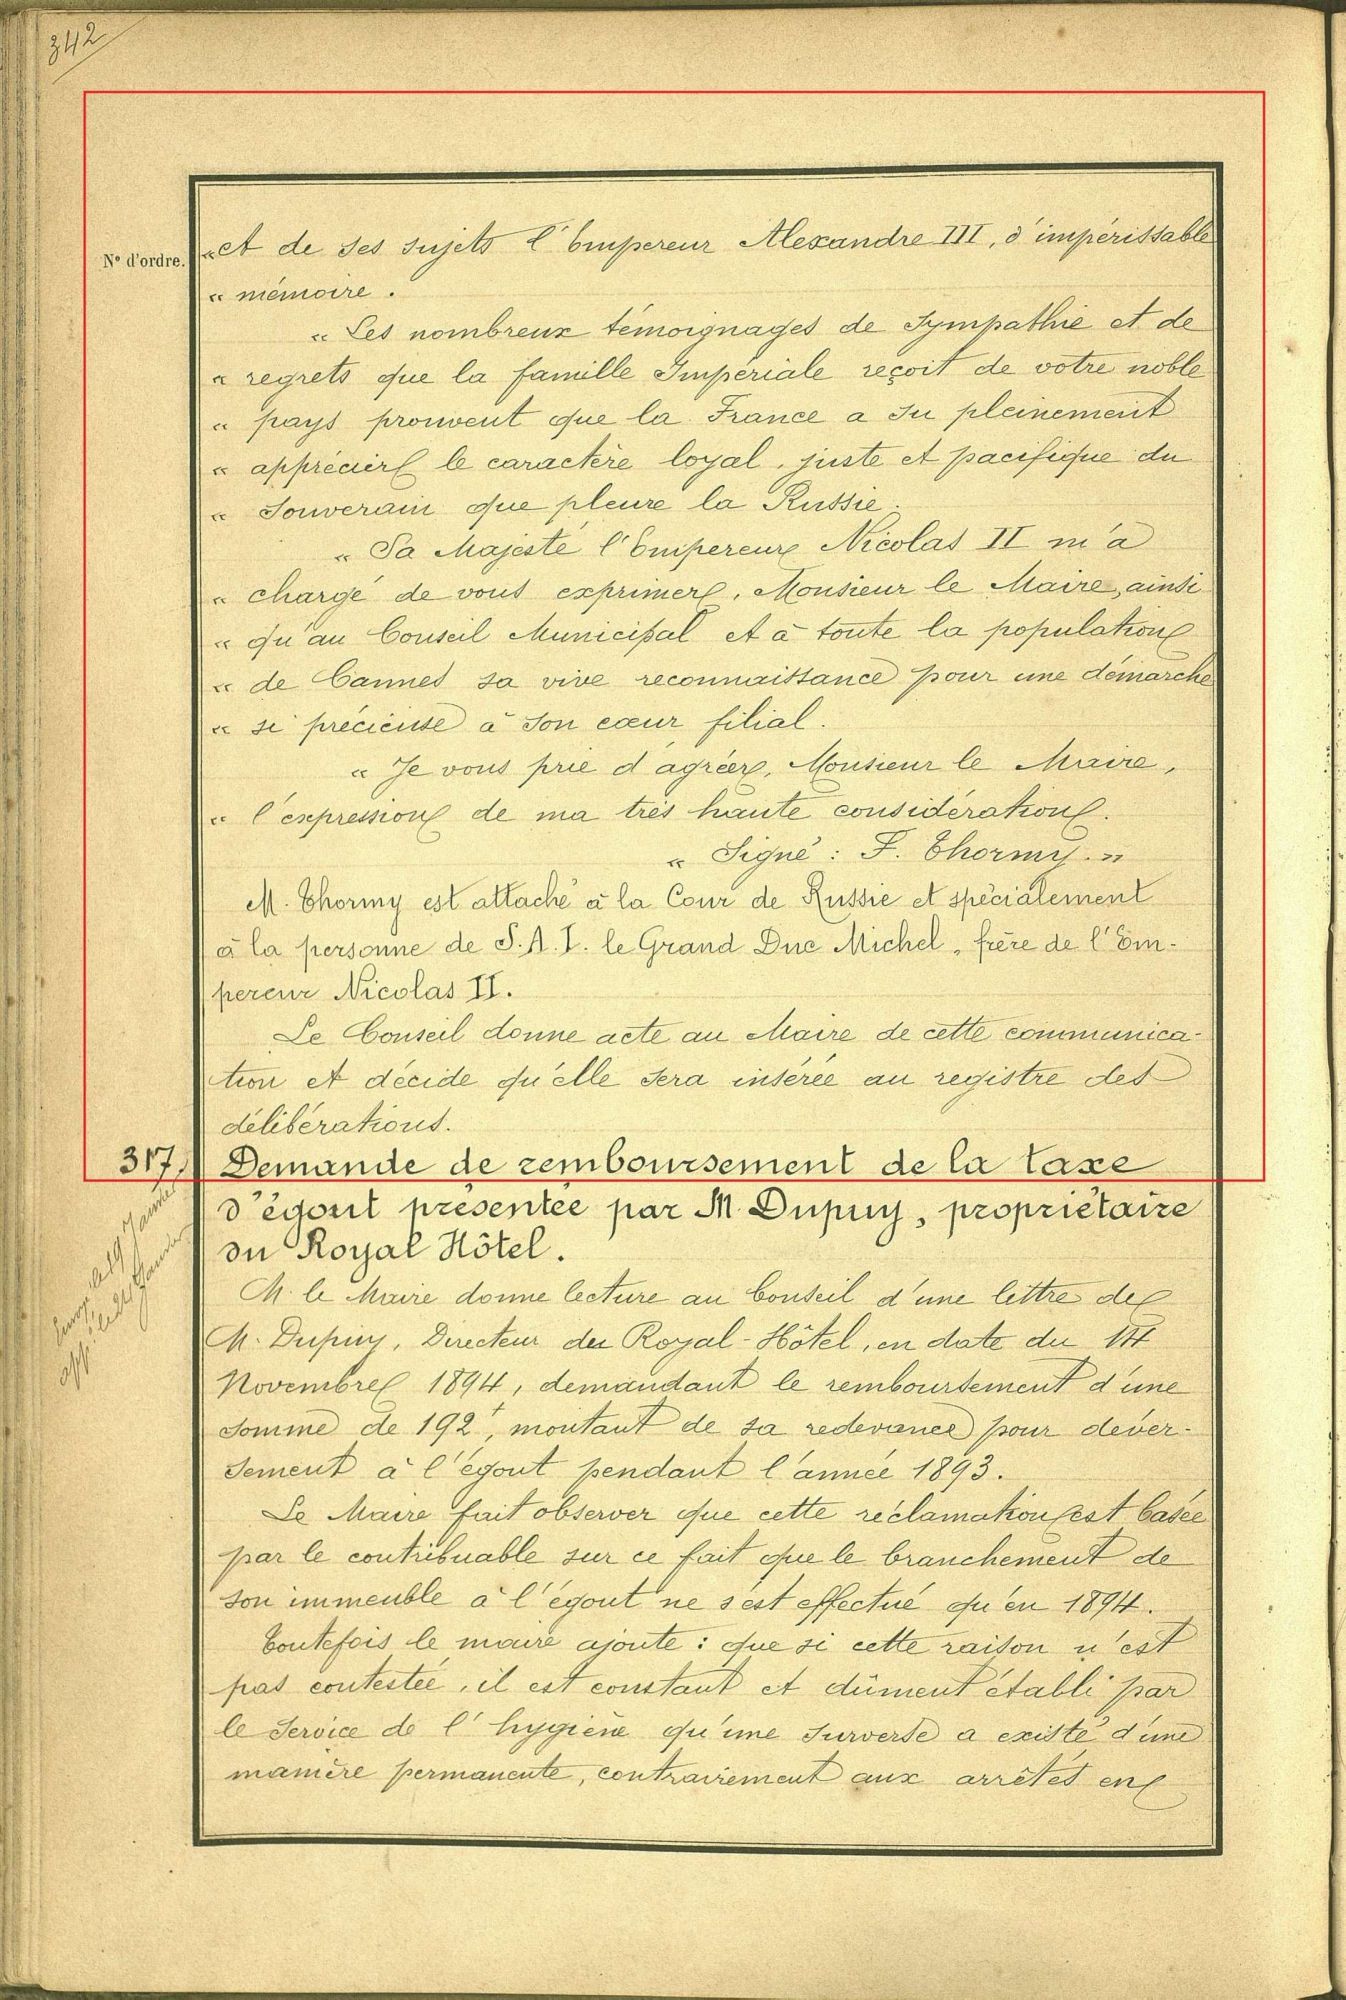 342
N° d'ordre.
« et de ses sujets l'Empereur Alexandre III, d'impérissable
« mémoire.
« Les nombreux témoignages de sympathie et de
« regrets que la famille Impériale reçoit de votre noble
« pays prouvent que la France a su pleinement
« apprécier le caractère loyal, juste et pacifique du
« Souverain que pleure la Russie.
« Sa Majesté l'Empereur Nicolas II m'a
« chargé de vous exprimer, Monsieur le Maire, ainsi
« qu'au Conseil Municipal et à toute la population
« de Cannes sa vive reconnaissance pour une démarche
« si précieuse à son cœur filial.
« Je vous prie d'agréer, Monsieur le Maire,
« l'expression de ma très haute considération.
« Signé : F. Thormy. »
M. Thormy est attaché à la Cour de Russie et spécialement
à la personne de S.A.I. le Grand Duc Michel, frère de l'Em-
pereur Nicolas II.
Le Conseil donne acte au Maire de cette communica-
tion et décide qu'elle sera insérée au registre des
délibérations.
317, Demande de remboursement de la taxe
d'égout présentée par M. Dupuy, propriétaire
du Royal Hôtel.
Envoyé le 19 Janvier
app. le 24 Janvier
M. le Maire donne lecture au Conseil d'une lettre de
M. Dupuy, Directeur du Royal-Hôtel, en date du 14
Novembre 1894, demandant le remboursement d'une
somme de 192f, montant de sa redevance pour déver-
sement à l'égout pendant l'année 1893.
Le Maire fait observer que cette réclamation est basée
par le contribuable sur ce fait que le branchement de
son immeuble à l'égout ne s'est effectué qu'en 1894.
Toutefois le maire ajoute : que si cette raison n'est
pas contestée, il est constant et dûment établi par
le Service de l'hygiène qu'une surverse a existé d'une
manière permanente, contrairement aux arrêtés en